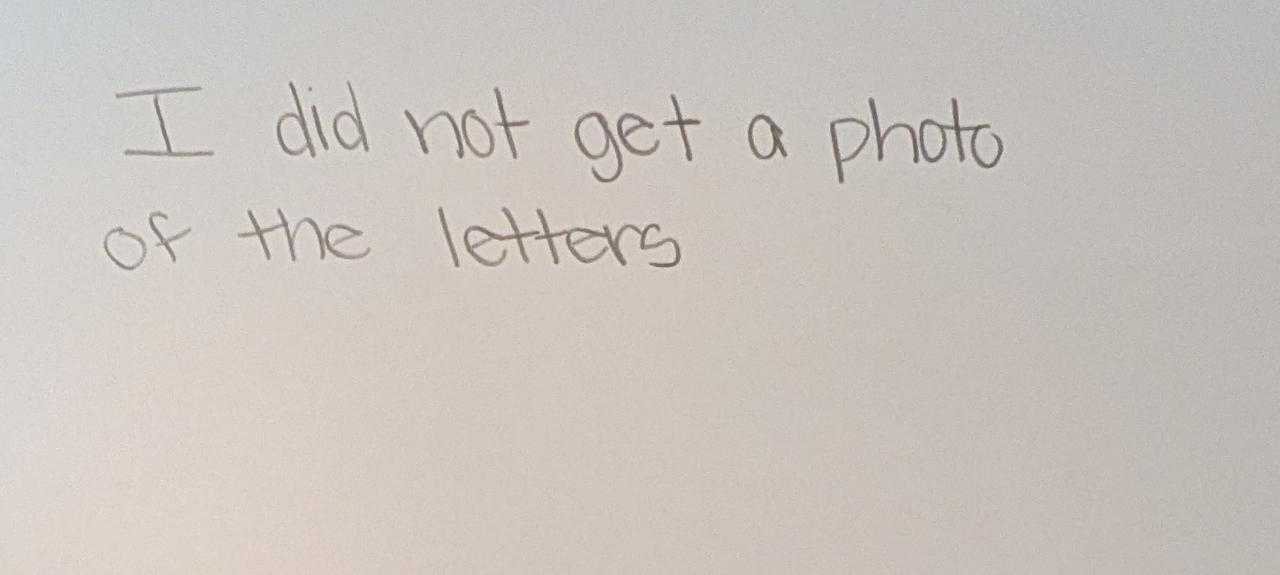 I did not get a photo
of the letters